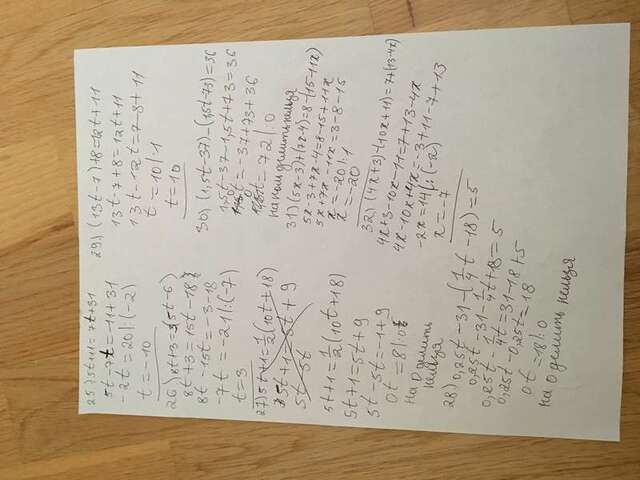 25) 5t+11=7t+31
5t-7t=-11+31
-2t=20|:(-2)
t=-10
26) 8t+3=3(5t-6)
8t+3=15t-18
8t-15t=-3-18
-7t=-21|:(-7)
t=3
27) 5t+1=1/2(10t+18)
5t+1=5t+9
5t-5t
5t+1=1/2(10t+18)
5t+1=5t+9
5t-5t=-1+9
0t=8|:0
на 0 делить
нельзя
28) 0,25t-31-(1/4t-18)=5
0,25t-31-1/4t+18=5
0,25t-1/4t=31-18+5
0,25t-0,25t=18
0t=18|:0
на 0 делить нельзя
29) (13t-7)+8=12t+11
13t-7+8=12t+11
13t-12t=7-8+11
t=10|:1
t=10
30) (1,5t-37)-(1,5t-73)=36
1,5t-37-1,5t+73=36
0t=-37+73+36
0t=72|:0
на ноль делить нельзя
31) (5x-3)+(7x-4)=8-(15-11x)
5x-3+7x-4=8-15+11x
5x+7x-11x=3-8-15
x=-20|:1
x=-20
32) (4x+3)-(10x+11)=7+(13-4x)
4x+3-10x-11=7+13-4x
4x-10x+4x=-3+11-7+13
-2x=14|:(-2)
x=-7